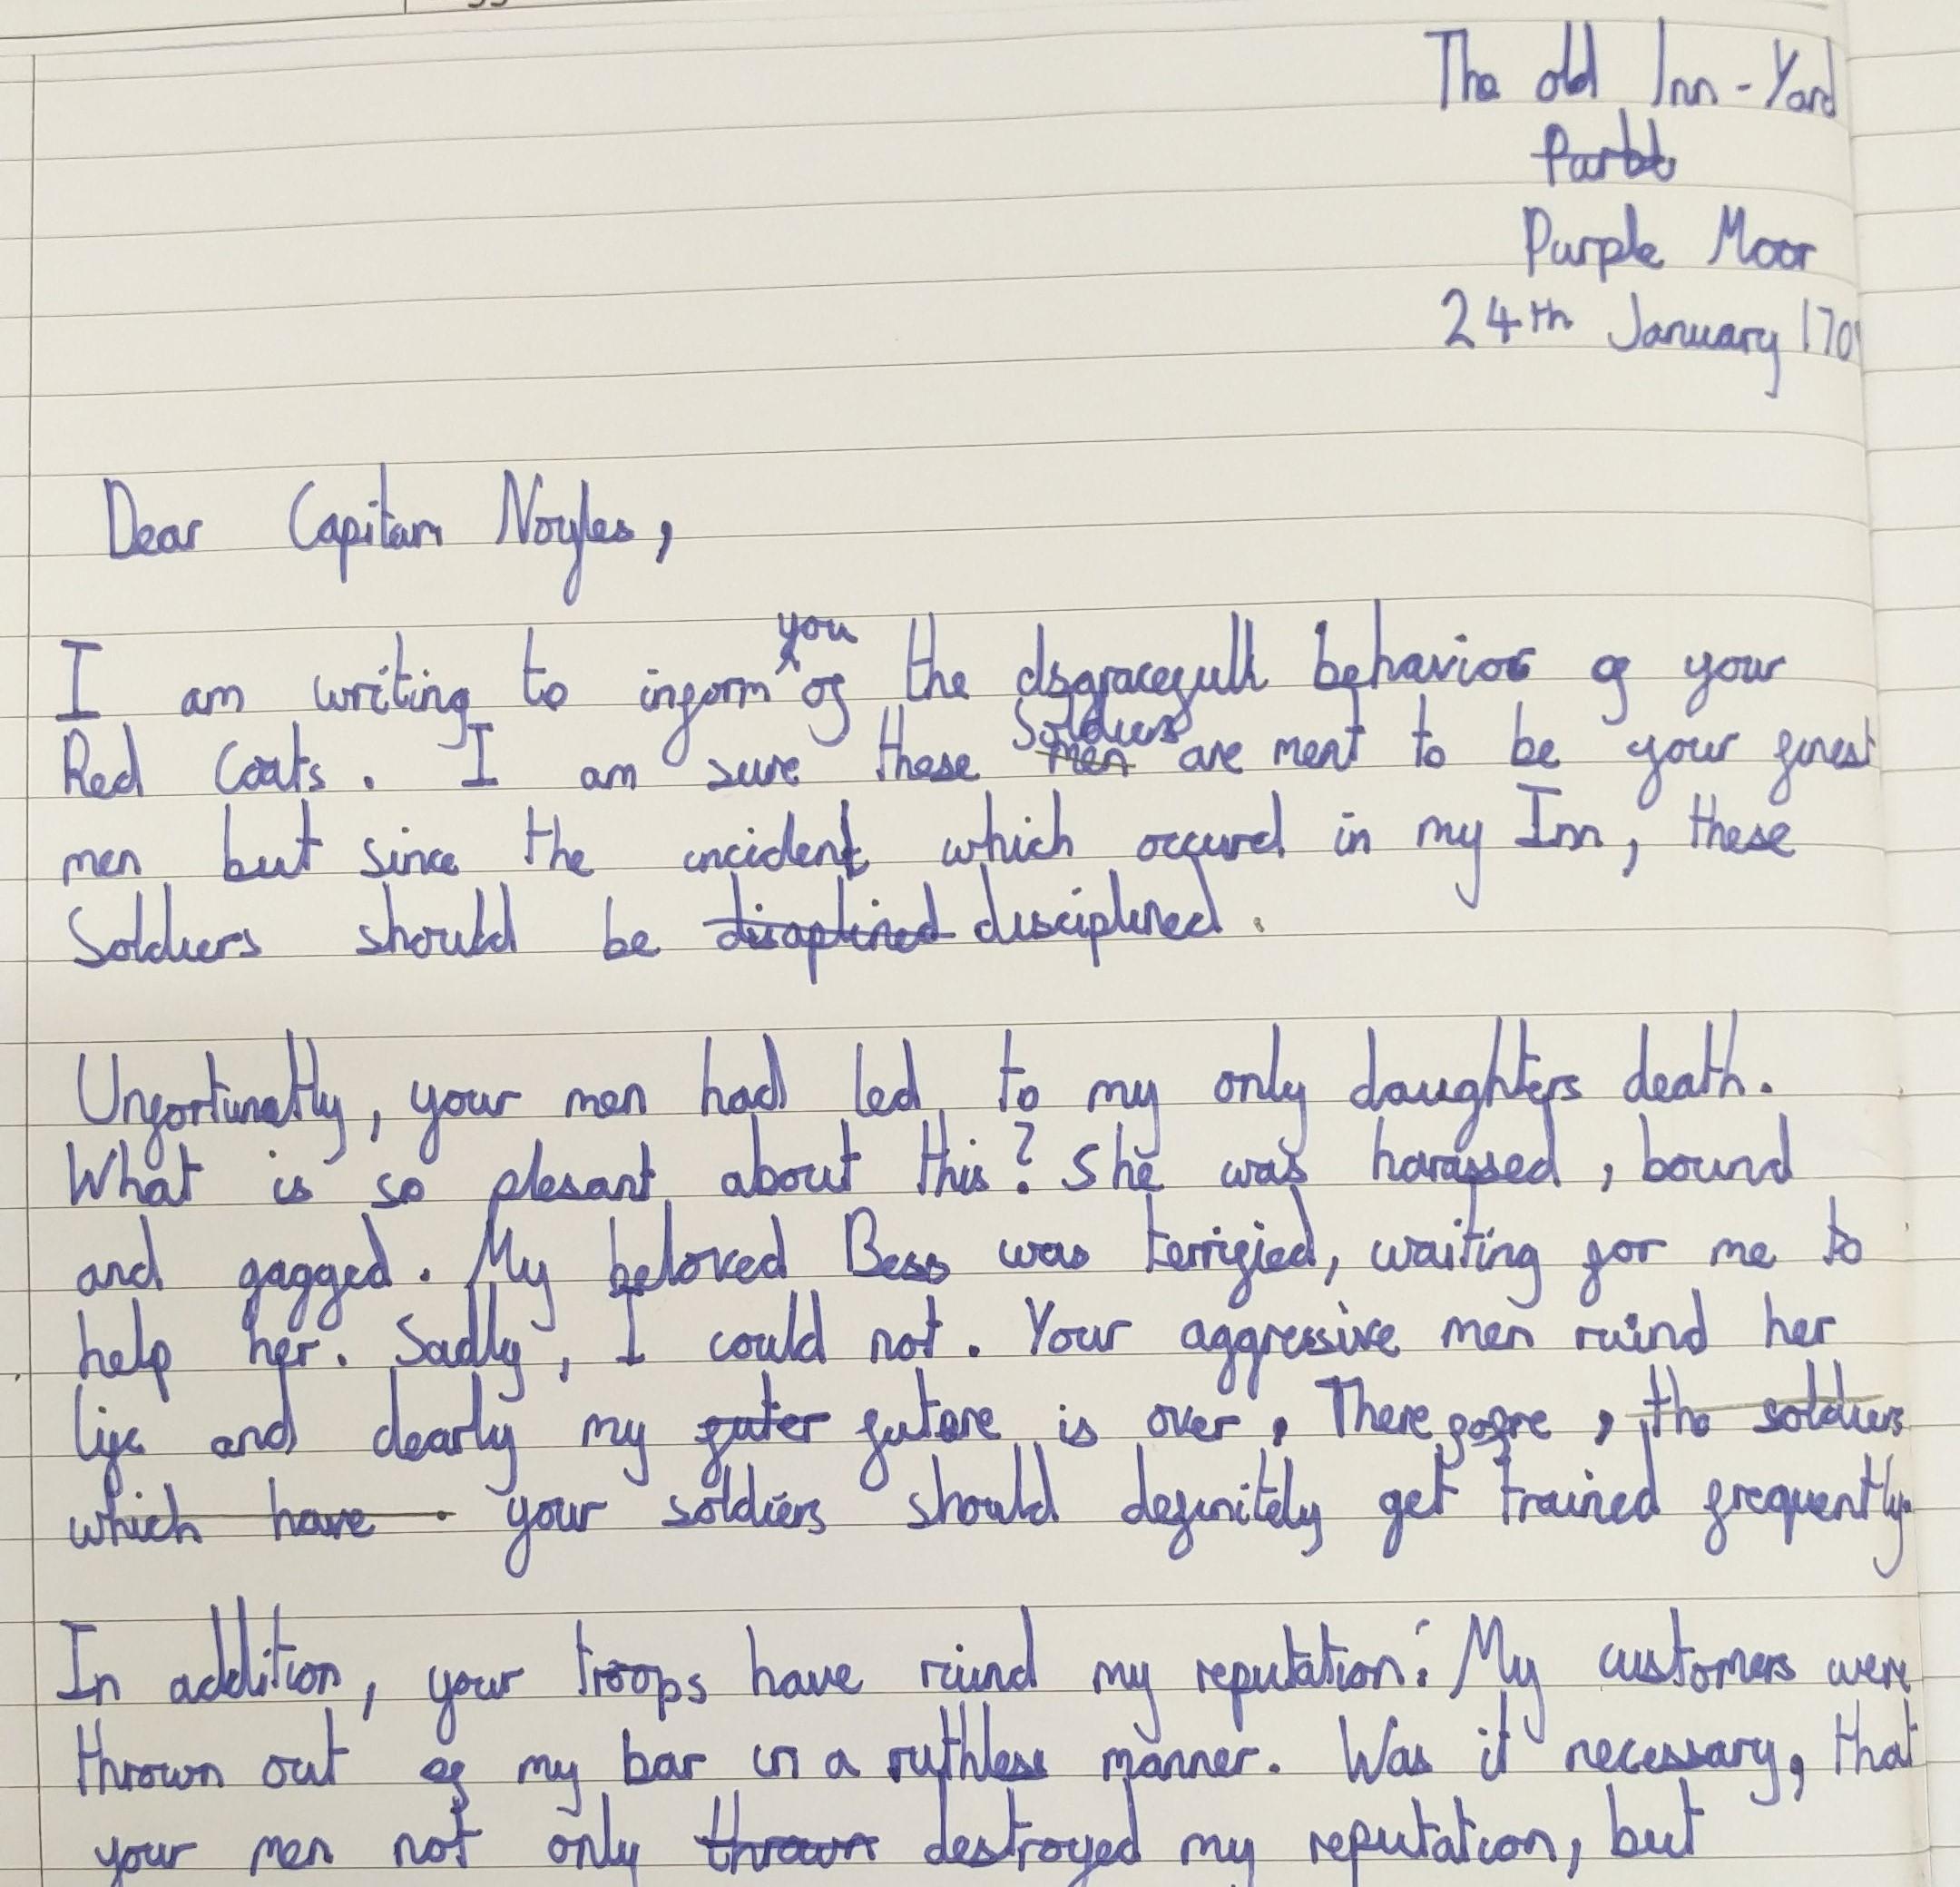 The old Inn-Yard
Purple Moor
24th January 170
Dear Capitan Noyles,
I am writing to inform you of the dsgracefull behavior of your
Red Coats. I am sure these Soldiers are ment to be your finest
men but since the incident which occured in my Inn, these
Soldiers should be disaplined disciplined.
Unfortunatly, your men had led to my only daughters death.
What is so plesant about this? She was harassed, bound
and gagged. My beloved Bess was terrified, waiting for me to
help her. Sadly, I could not. Your aggressive men ruind her
life and clearly my futer future is over, Therefore, the soldiers
which have your soldiers should definitely get trained frequently.
In addition, your troops have ruind my reputation: My customers were
thrown out of my bar in a ruthless manner. Was it necessary, that
your men not only thrown destroyed my reputation, but